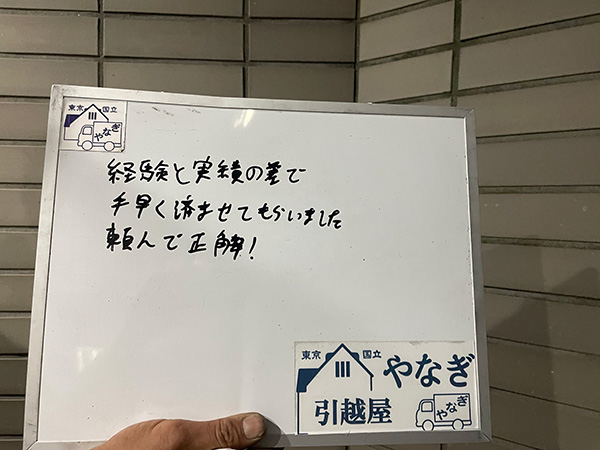 東京 国立
やなぎ
経験と実績の差で
手早く済ませてもらいました
頼んで正解!
東京 国立 やなぎ
引越屋
やなぎ